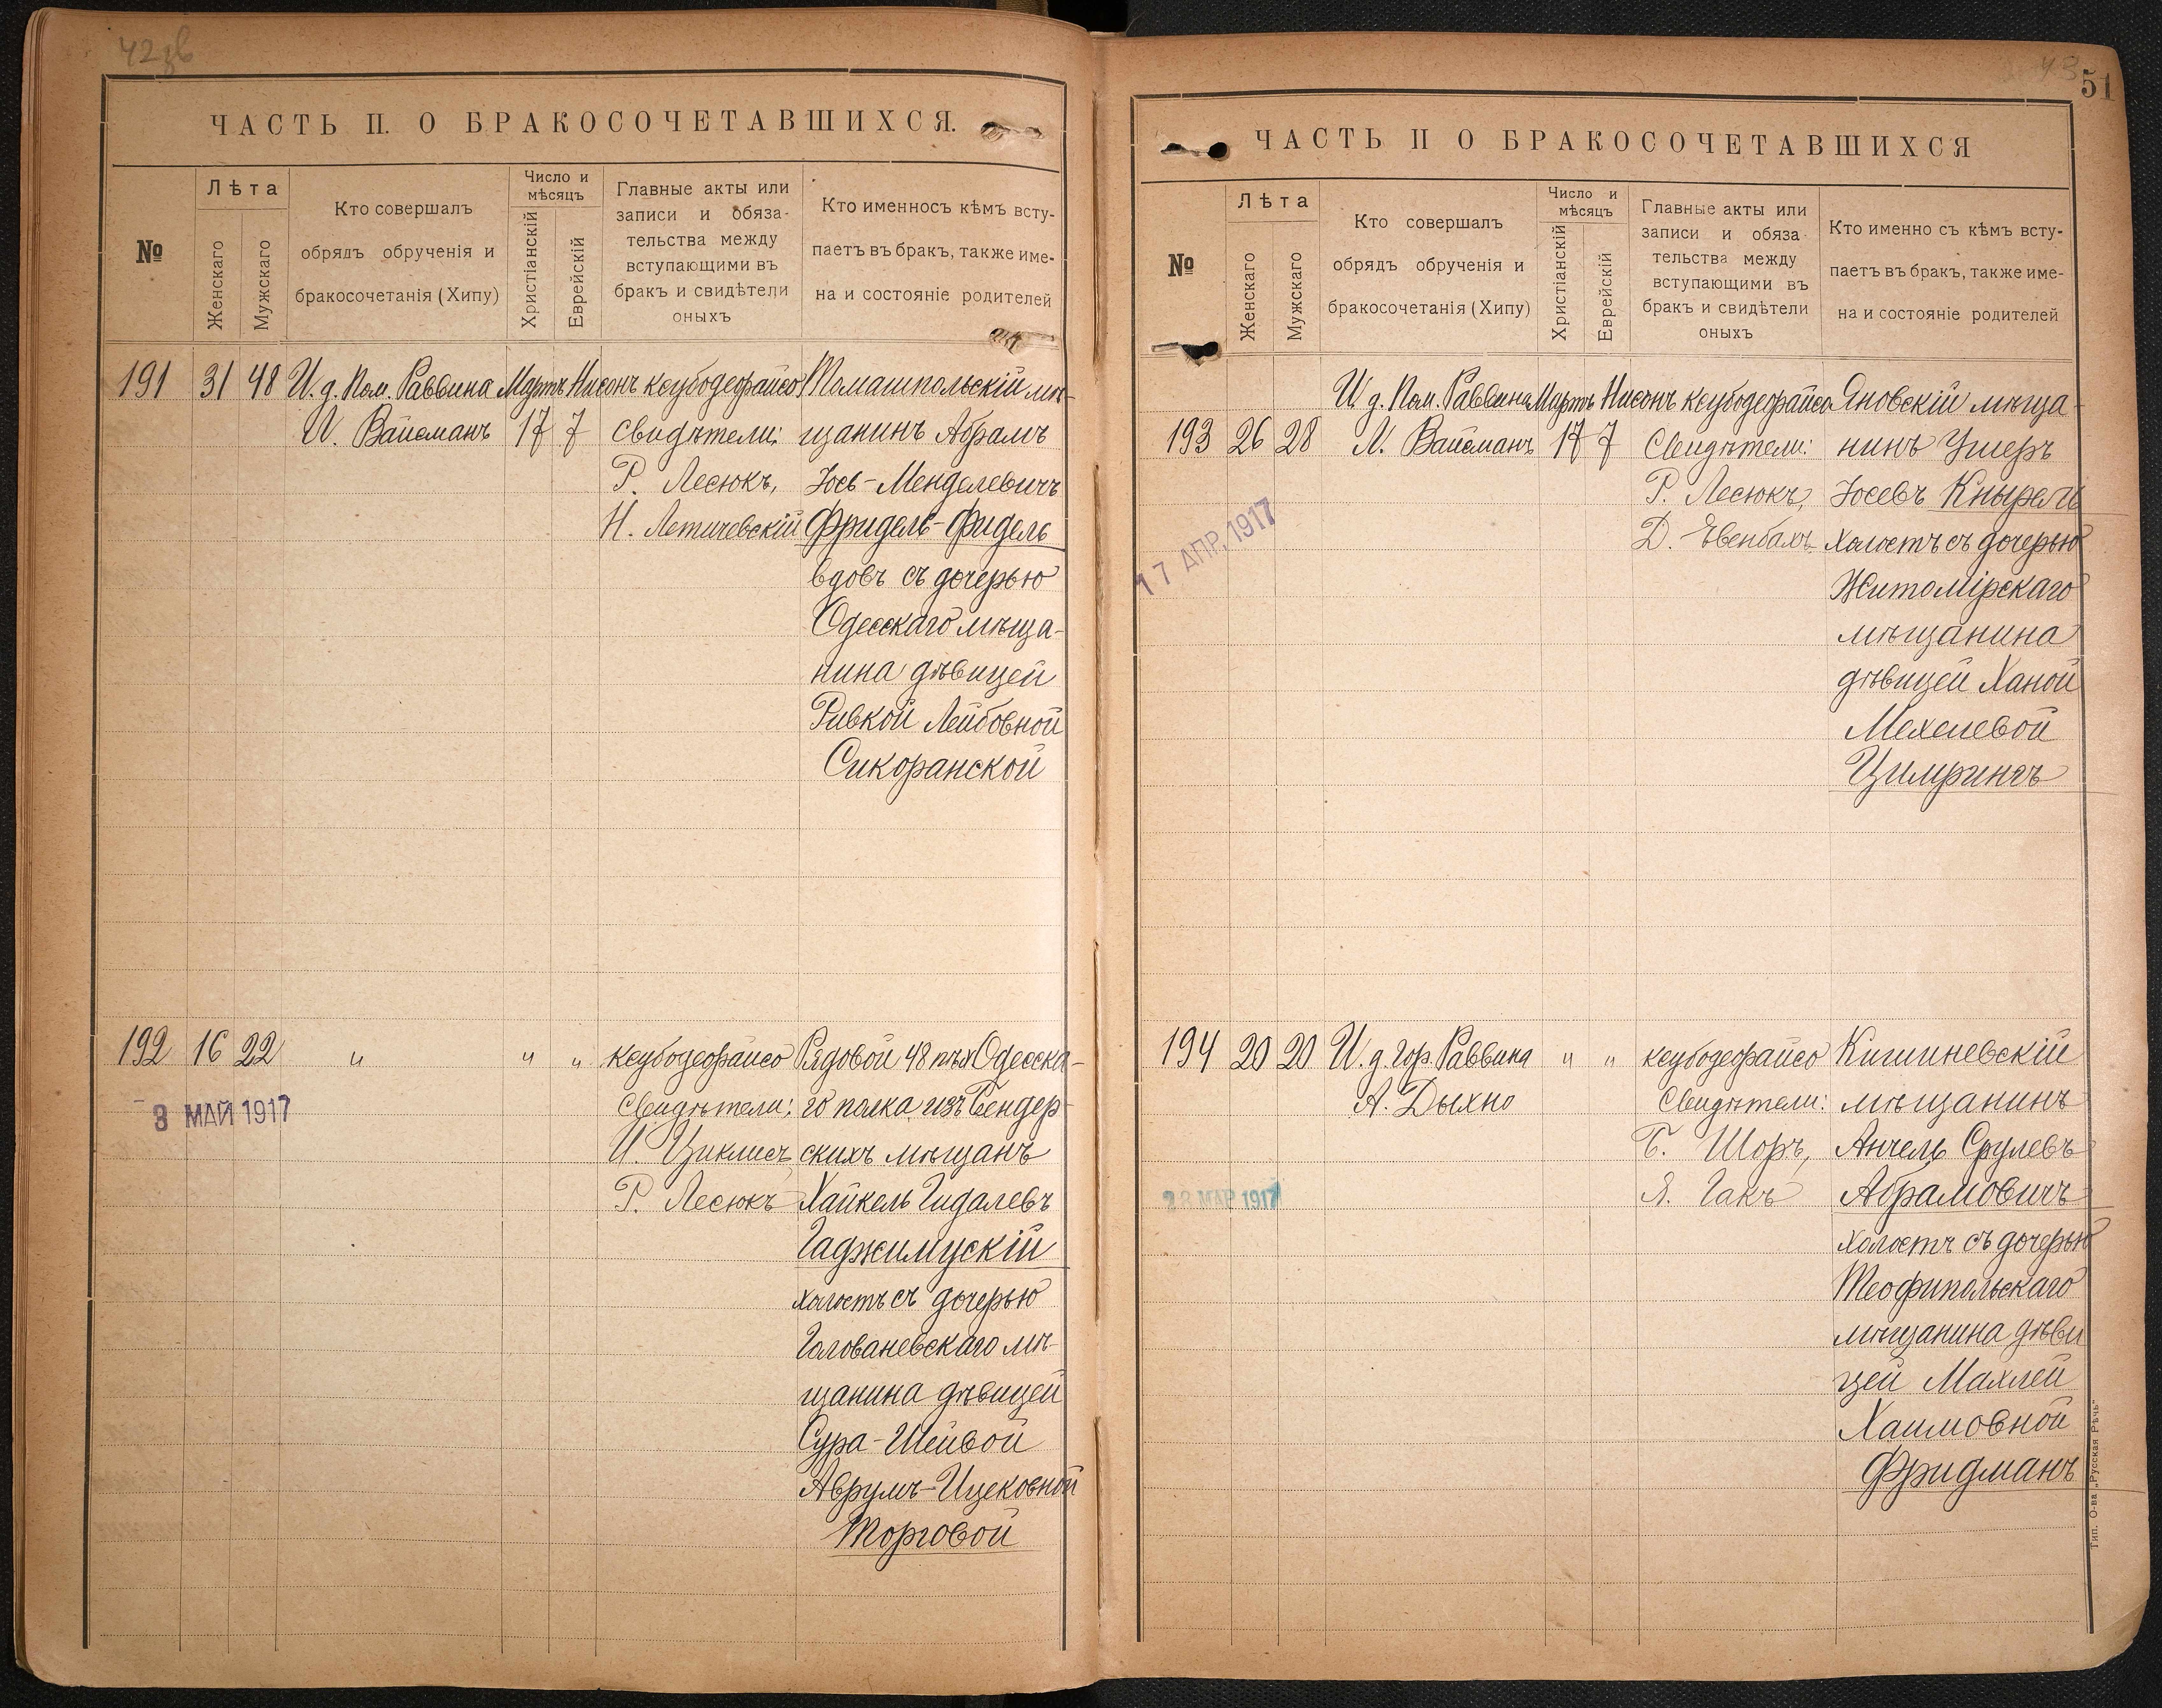 42
ЧАСТЬ II. О БРАКОСОЧЕТАВШИХСЯ.
№
Лѣта
Женскаго
Мужскаго
Кто совершалъ
обрядъ обрученія и
бракосочетанія (Хипу)
Число и
мѣсяцъ
Христіанскій
Еврейскій
Главные акты или
записи и обяза-
тельства между
вступающими въ
бракъ и свидѣтели
оныхъ
Кто именносъ кѣмъ всту-
паетъ въ бракъ, также име-
на и состояніе родителей
191 31 48 И. д. Пом. Раввина Мартъ Нисонъ ксубодеорайсо Томашпольскій мѣ-
И. Вайсманъ 17 7 свидѣтели: щанинъ Абрамъ
Р. Лесюкъ, Іось-Менделевичъ
Н. Летичевскій Фридель-Фидель
вдовъ съ дочерью
Одесскаго мѣща-
нина дѣвицей
Ривкой Лейбовной
Сикоранской
192 16 22 " " " ксубодеорайсо Рядовой 48 пѣх Одесска-
3 МАЙ 1917
Свидѣтели: го полка изъ Бендер-
И. Циклисъ, скихъ мѣщанъ
Р. Лесюкъ Хайкель Гидалевъ
Гаджимускій
холостъ съ дочерью
Голованевскаго мѣ-
щанина дѣвицей
Сура-Шейвой
Аврумъ-Ицековной
Торговой
43
51
ЧАСТЬ II О БРАКОСОЧЕТАВШИХСЯ
№
Лѣта
Женскаго
Мужскаго
Кто совершалъ
обрядъ обрученія и
бракосочетанія (Хипу)
Число и
мѣсяцъ
Христіанскій
Еврейскій
Главные акты или
записи и обяза-
тельства между
вступающими въ
бракъ и свидѣтели
оныхъ
Кто именно съ кѣмъ всту-
паетъ въ бракъ, также име-
на и состояніе родителей
И. д. Пом. Раввина Мартъ Нисонъ ксубодеорайсо Яновскій мѣща-
193 26 28 И. Вайсманъ 17 7 Свидѣтели: нинъ Ушеръ
Р. Лесюкъ, Іосевъ Кнырель
17 АПР. 1917
Д. Эвенбахъ холостъ съ дочерью
Житомірскаго
мѣщанина
дѣвицей Ханой
Мехелевой
Цимрингъ
194 20 20 И. д. Гор. Раввина " " ксубодеорайсо Кишиневскій
А. Дыхно Свидѣтели: мѣщанинъ
Б. Шоръ, Анчель Срулевъ
28 МАР 1917
Я. Гакъ Абрамовичъ
холостъ съ дочерью
Теофипольскаго
мѣщанина дѣви
цей Махлей
Хаимовной
Фридманъ
Тип. О-ва „Русская Рѣчь"